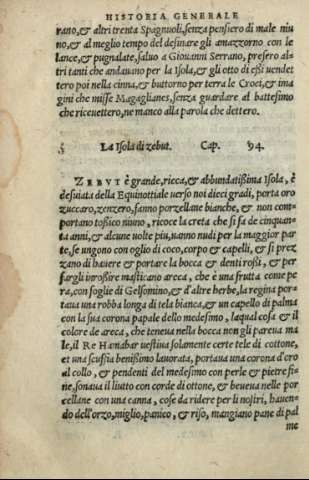 HISTORIA GENERALE
rano,& altri trenta Spagnuoli,senza pensiero di male niu
no,& al meglio tempo del desinare gli amazzorno con le
lance,& pugnalate,saluo a Giouanni Serrano, presero al=
tri tanti che andauano per la Isola,& gli otto di essi uendet
tero poi nella cinna,& buttorno per terra le Croci,& ima
gini che misse Magaglianes,senza guardare al battesimo
che riceuettero,ne manco alla parola che dettero.
La Isola di zebut. Cap. 94.
ZEBUT è grande,ricca,& abbundatissima Isola, è
desuiata della Equinottiale uerso noi dieci gradi, porta oro
zuccaro,zenzero,fanno porzellane bianche, & non com=
portano tossico niuno, ricoce la creta che si fa de cinquan=
ta anni,& alcune uolte piu,uanno nudi per la maggior par
te,se ungono con oglio di coco,corpo & capelli, & si prez
zano di hauere & portare la bocca & denti rossi, & per
fargli inrossire masticano areca, che è una frutta come pe
ra,con foglie di Gelsomino,& d'altre herbe,la regina por=
taua una robba longa di tela bianca,& un capello di palma
con la sua corona papale dello medesimo, laqual cosa & il
colore de areca, che teneua nella bocca non gli pareua ma
le,il Re Hamabar uestiua solamente certe tele di cottone,
et una scuffia benissimo lauorata, portaua una corona d'oro
al collo , & pendenti del medesimo con perle & pietre fi=
ne,sonaua il liutto con corde di ottone, & beueua nelle por
cellane con una canna , cose da ridere per li nostri, hauen=
do dell'orzo,miglio,panico , & riso, mangiano pane di pal
me